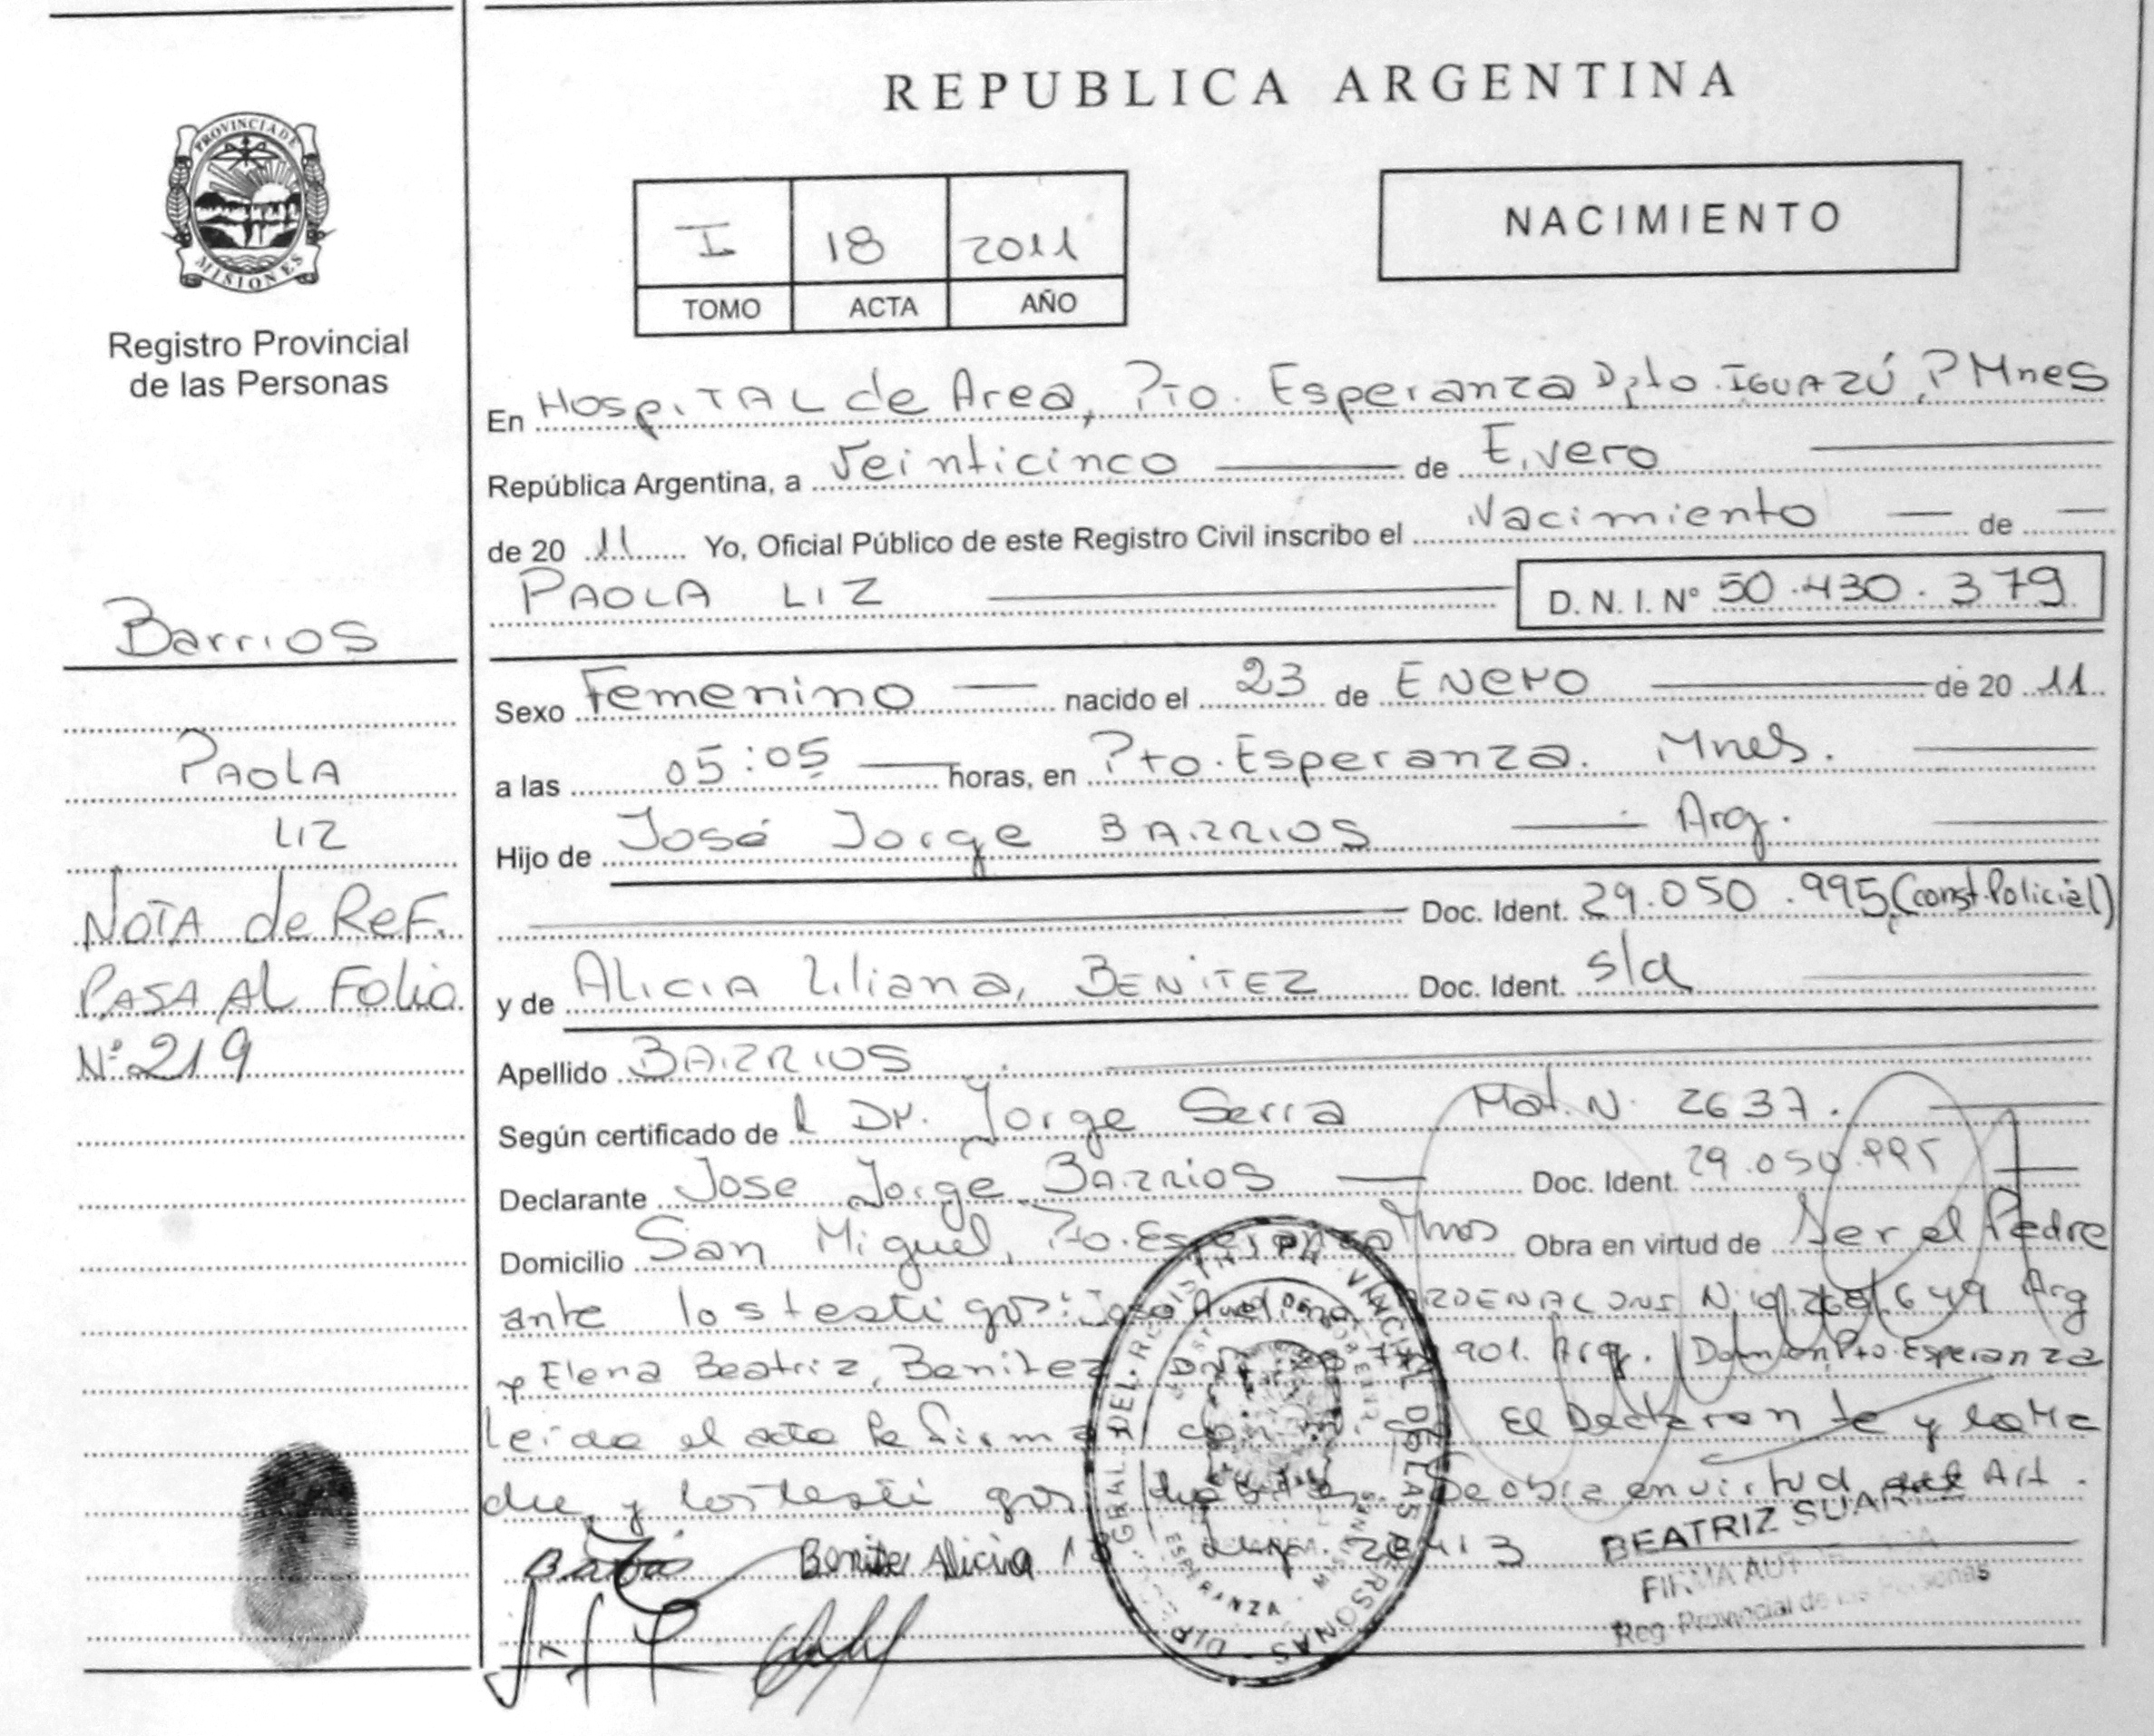 REPUBLICA ARGENTINA
PROVINCIA DE
MISIONES
Registro Provincial
de las Personas
I 18 2011
TOMO ACTA AÑO
NACIMIENTO
En Hospital de Area, Pto. Esperanza Dpto. Iguazú, P Mnes
República Argentina, a Veinticinco de Enero
de 20 11 Yo, Oficial Público de este Registro Civil inscribo el Nacimiento de
PAOLA LIZ
D. N. I. Nº 50.430.379
Barrios
Paola
Liz
NOTA de Ref.
PASA AL Folio
Nº 219
Sexo Femenino nacido el 23 de Enero de 20 11
a las 05:05 horas, en Pto. Esperanza. Mnes.
Hijo de José Jorge BARRIOS Arg.
Doc. Ident. 29.050.995, (const. Policial)
y de Alicia Liliana, BENITEZ Doc. Ident. s/d
Apellido BARRIOS
Según certificado de l Dr. Jorge Serra Mat. N. 2637.
Declarante Jose Jorge BARRIOS Doc. Ident. 29.050.995
Domicilio San Miguel, Pto. Esperanza Mnes Obra en virtud de Ser el Padre
ante los testigos: Arg
y Elena Beatriz, Benitez 901. Arg. Dom. en Pto. Esperanza
Leida el acta la firma El Declarante y la Ma
dre y los testigos Se obra en virtud del Art.
Benite Alicia
DIR. GRAL. DEL REGISTRO PROVINCIAL DE LAS PERSONAS
ESPERANZA
BEATRIZ SUAREZ
FIRMA
Reg. Provincial de las Personas